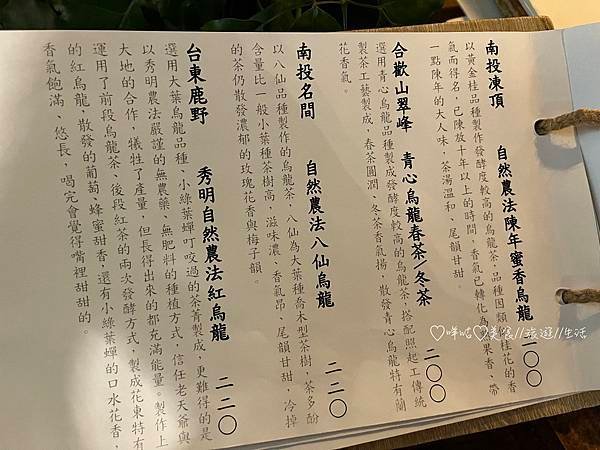 南投凍頂　自然農法陳年蜜香烏龍　二〇〇
以黃金桂品種製作發酵度較高的烏龍茶，品種因類似桂花的香
氣而得名，已陳放十年以上的時間，香氣已轉化為　果香，帶
一點陳年的大人味，茶湯溫和、尾韻甘甜。
合歡山翠峰　青心烏龍春茶/冬茶　二〇〇
選用青心烏龍品種製成發酵度較高的烏龍茶，搭配照起工傳統
製茶工藝製成，春茶圓潤、冬茶香氣揚，散發青心烏龍特有蘭
花香氣。
南投名間　自然農法八仙烏龍　二二〇
以八仙品種製作的烏龍茶，八仙為大葉種喬木型茶樹，茶多酚
含量比一般小葉種茶樹高，滋味濃、香氣昂，尾韻甘甜，冷掉
的茶仍散發濃郁的玫瑰花香與梅子韻。
台東鹿野　秀明自然農法紅烏龍　二二〇
選用大葉烏龍品種、小綠葉蟬叮咬過的茶菁製成，更難得的是
以秀明農法嚴謹的無農藥、無肥料的種植方式，信任老天爺與
大地的合作，犧牲了產量，但長得出來的都充滿能量。製作上
運用了前段烏龍茶、後段紅茶的兩次發酵方式，製成花東特有
的紅烏龍，散發的葡萄、蜂蜜甜香，還有小綠葉蟬的口水花香，
香氣飽滿、悠長，喝完會覺得嘴裡甜甜的。
♡咪咕♡美食//旅遊//生活